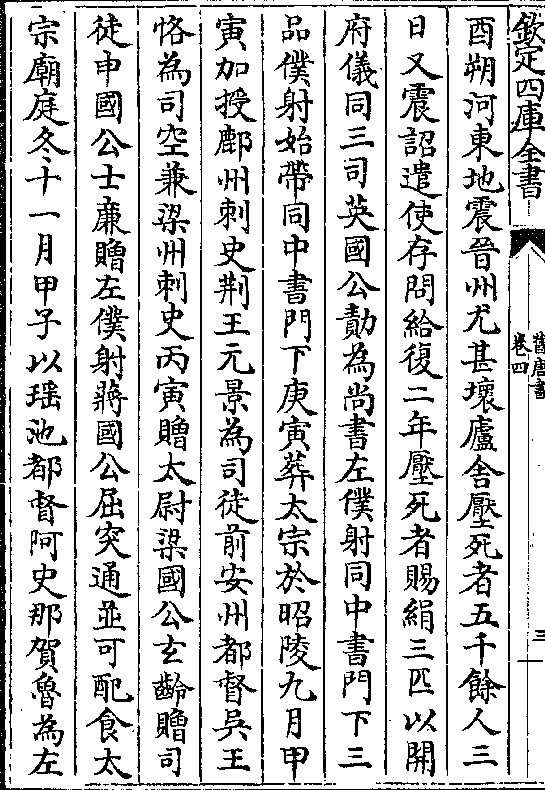 欽定四庫全書
舊唐書
卷四
三
酉朔河東地震晉州尤甚壞廬舍壓死者五千餘人三
日又震詔遣使存問給復二年壓死者賜絹三匹以開
府儀同三司英國公勣為尚書左僕射同中書門下三
品僕射始帶同中書門下庚寅葬太宗於昭陵九月甲
寅加授鄜州刺史荆王元景為司徒前安州都督吳王
恪為司空兼梁州刺史丙寅贈太尉梁國公玄齡贈司
徒申國公士廉贈左僕射蔣國公屈突通並可配食太
宗廟庭冬十一月甲子以瑶池都督阿史那賀魯為左